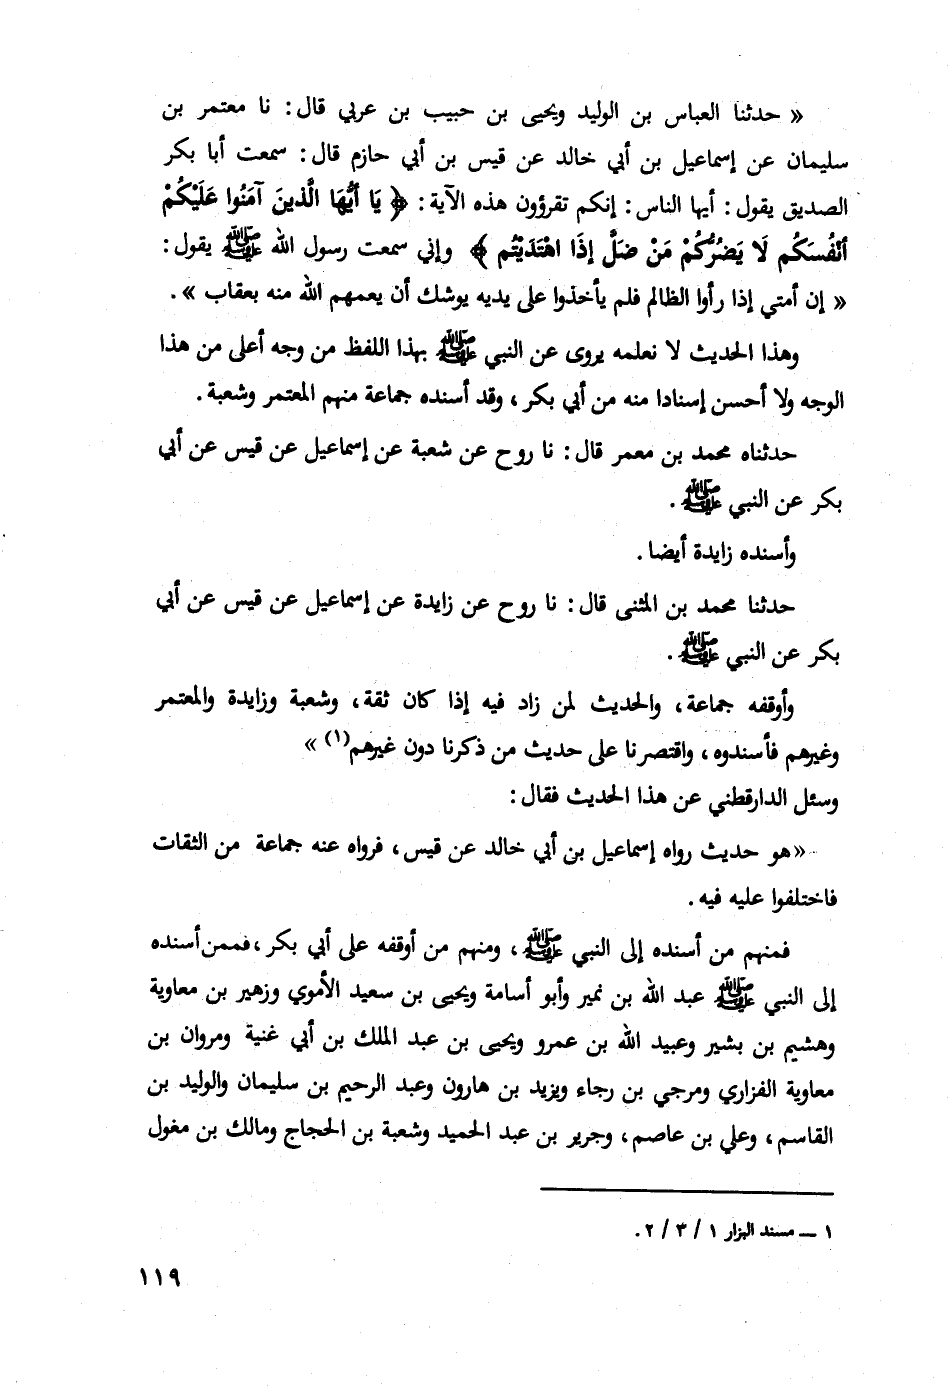 « حدثنا العباس بن الوليد ويحيى بن حبيب بن عربي قال : نا معتمر بن
سليمان عن إسماعيل بن أبي خالد عن قيس بن أبي حازم قال : سمعت أبا بكر
الصديق يقول : أيها الناس : إنكم تقرؤون هذه الآية : ﴿ يَا أَيُّهَا الَّذينَ آمَنُوا عَلَيْكُمْ
أَنْفُسَكُم لَا يَضُرُّكُمْ مَنْ ضَلَّ إِذَا اهْتَدَيْتُم ﴾ وإني سمعت رسول الله ﷺ يقول :
« إن أمتي إذا رأوا الظالم فلم يأخذوا على يديه يوشك أن يعمهم الله منه بعقاب » .
وهذا الحديث لا نعلمه يروى عن النبي ﷺ بهذا اللفظ من وجه أعلى من هذا
الوجه ولا أحسن إسنادا منه من أبي بكر ، وقد أسنده جماعة منهم المعتمر وشعبة .
حدثناه محمد بن معمر قال : نا روح عن شعبة عن إسماعيل عن قيس عن أبي
بكر عن النبي ﷺ .
وأسنده زايدة أيضا .
حدثنا محمد بن المثنى قال : نا روح عن زايدة عن إسماعيل عن قيس عن أبي
بكر عن النبي ﷺ .
وأوقفه جماعة ، والحديث لمن زاد فيه إذا كان ثقة ، وشعبة وزايدة والمعتمر
وغيرهم فأسندوه ، واقتصرنا على حديث من ذكرنا دون غيرهم(١) »
وسئل الدارقطني عن هذا الحديث فقال :
« هو حديث رواه إسماعيل بن أبي خالد عن قيس ، فرواه عنه جماعة من الثقات
فاختلفوا عليه فيه .
فمنهم من أسنده إلى النبي ﷺ ، ومنهم من أوقفه على أبي بكر ، فممن أسنده
إلى النبي ﷺ عبد الله بن نمير وأبو أسامة ويحيى بن سعيد الأموي وزهير بن معاوية
وهشيم بن بشير وعبيد الله بن عمرو ويحيى بن عبد الملك بن أبي غنية ومروان بن
معاوية الفزاري ومرجي بن رجاء ويزيد بن هارون وعبد الرحيم بن سليمان والوليد بن
القاسم ، وعلي بن عاصم ، وجرير بن عبد الحميد وشعبة بن الحجاج ومالك بن مغول
١ ــ مسند البزار ١ / ٣ / ٢ .
١١٩